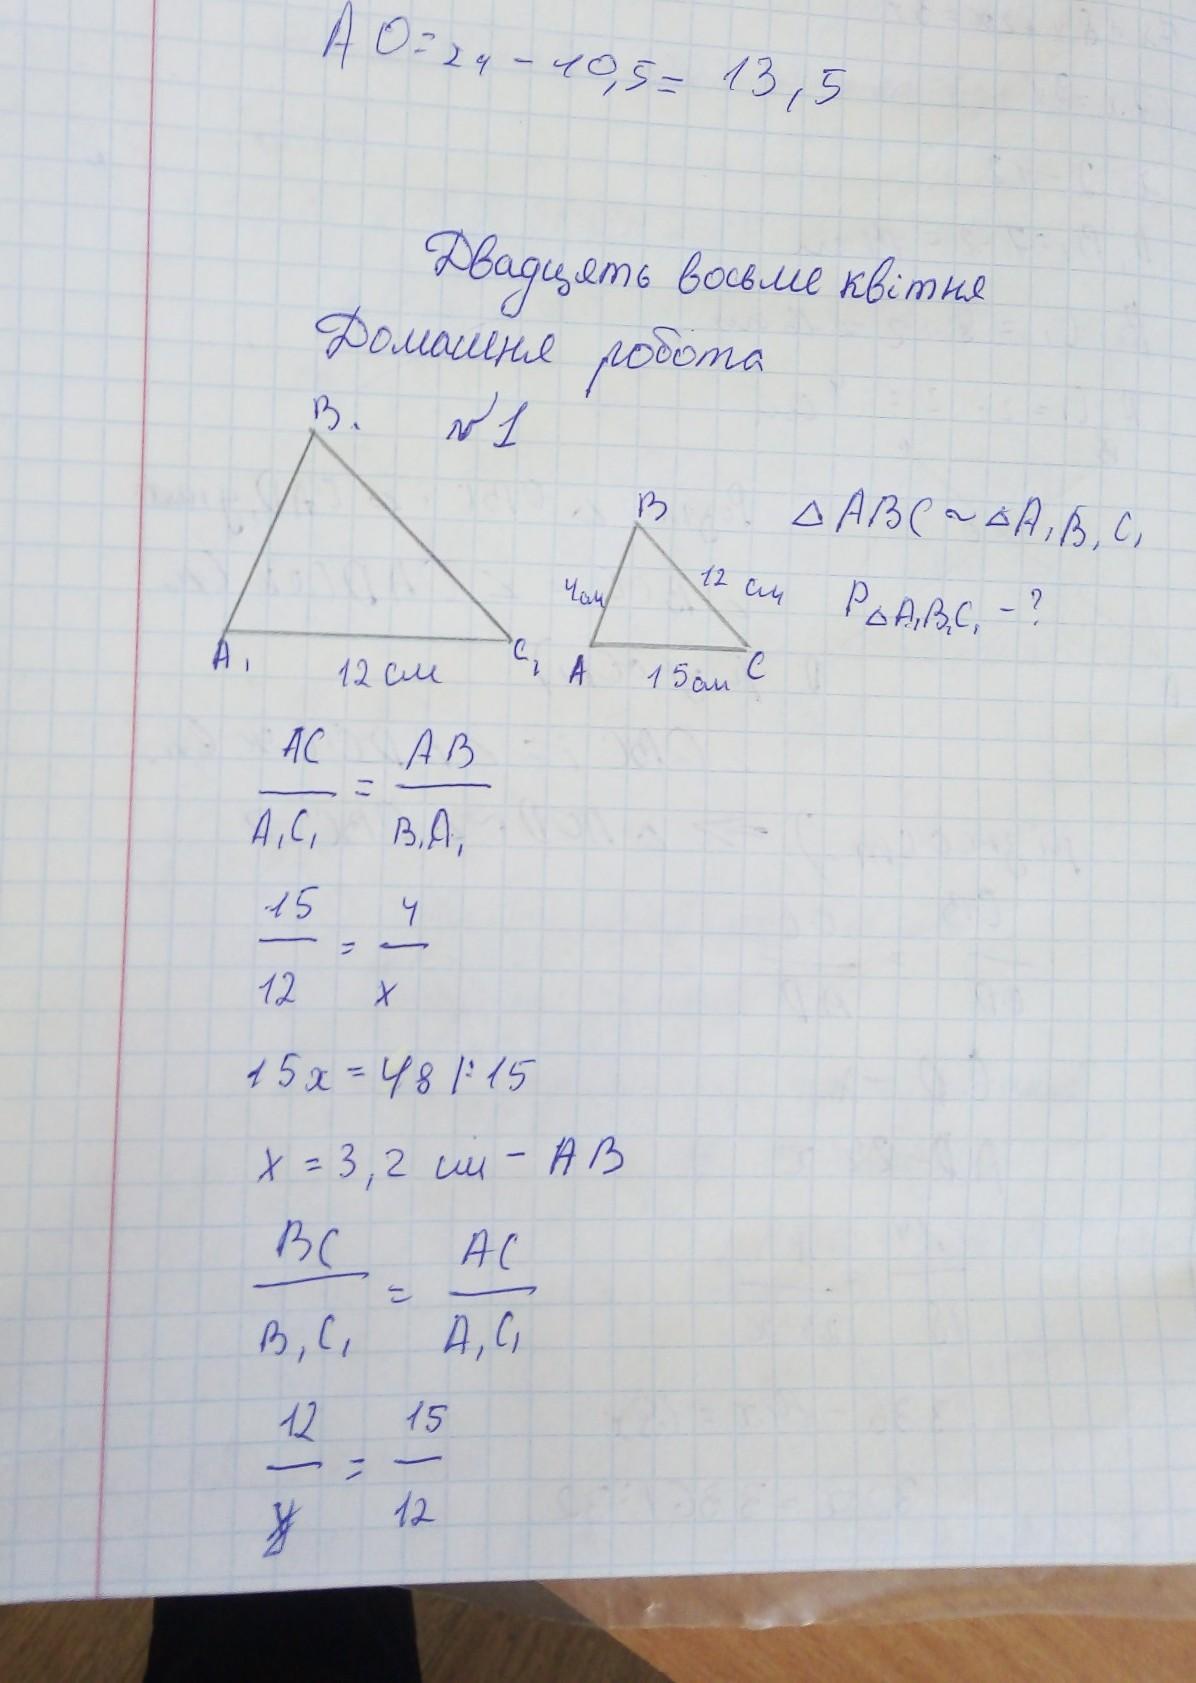 AO=24-10,5= 13,5
Двадцять восьме квітня
Домашня робота
№1
B₁
A₁
C₁
12 см
B
4см
12 см
A
15см
C
△ABC ~ △A₁B₁C₁
P△A₁B₁C₁ - ?
AC/A₁C₁ = AB/B₁A₁
15/12 = 4/x
15x = 48 |:15
x = 3,2 см - AB
BC/B₁C₁ = AC/A₁C₁
12/y = 15/12